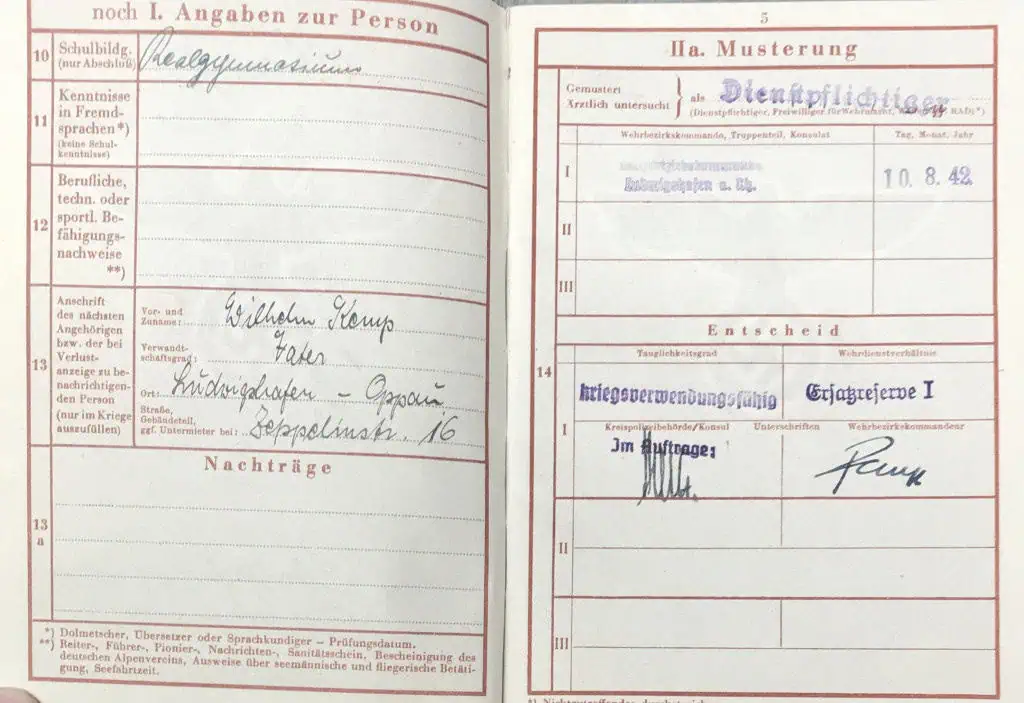 noch I. Angaben zur Person
10 Schulbildg.
(nur Abschluß)
Realgymnasium
11 Kenntnisse
in Fremd-
sprachen*)
(keine Schul-
kenntnisse)
12 Berufliche,
techn. oder
sportl. Be-
fähigungs-
nachweise
**)
13 Anschrift
des nächsten
Angehörigen
bzw. der bei
Verlust-
anzeige zu be-
nachrichtigen-
den Person
(nur im Kriege
auszufüllen)
Vor- und
Zuname: Wilhelm Kemp
Verwandt-
schaftsgrad: Vater
Ort: Ludwigshafen - Oppau
Straße,
Gebäudeteil,
ggf. Untermieter bei: Zeppelinstr. 16
Nachträge
13
a
*) Dolmetscher, Übersetzer oder Sprachkundiger – Prüfungsdatum.
**) Reiter-, Führer-, Pionier-, Nachrichten-, Sanitätsschein, Bescheinigung des
deutschen Alpenvereins, Ausweise über seemännische und fliegerische Betäti-
gung, Seefahrtzeit.
5
IIa. Musterung
Gemustert
Ärztlich untersucht } als Dienstpflichtiger
(Dienstpflichtiger, Freiwilliger für Wehrmacht, RAD)*)
Wehrbezirkskommando, Truppenteil, Konsulat
Tag, Monat, Jahr
I
Ludwigshafen a. Rh.
10. 8. 42
II
III
Entscheid
14
Tauglichkeitsgrad
Wehrdienstverhältnis
kriegsverwendungsfähig
Ersatzreserve I
I
Kreispolizeibehörde/Konsul Unterschriften Wehrbezirkskommandeur
Im Auftrage:
II
III